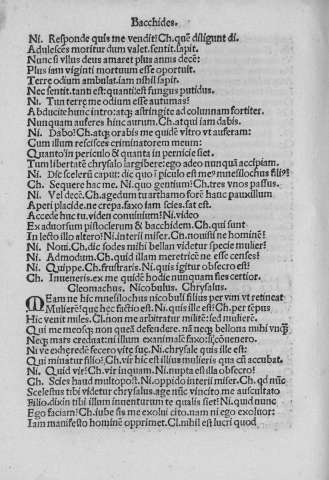 Bacchides.
Ni. Responde quis me vendit? Ch. quē diligunt di.
Adulescēs moritur dum valet. sentit. sapit.
Nunc si vllus deus amaret plus annis decē:
Plus iam viginti mortuum esse oportuit.
Terre odium ambulat. iam nihil sapit.
Nec sentit. tanti est: quanti: est fungus putidus.
Ni. Tun terre me odium esse autumas?
Abducite hunc intro: atq; astringite ad columnam fortiter.
Nunquam auferes hinc aurum. Ch. atqui iam dabis.
Ni. Dabo? Ch. atq; orabis me quidē vltro vt auferam:
Cum illum rescisces criminatorem meum:
Quanto in periculo & quanta in pernicie siet.
Tum libertatē chrysalo largibere: ego adeo nunquā accipiam.
Ni. Dic scelerū caput: dic quo ī piculo est me⁹ mnesilochus fili⁹?
Ch. Sequere hac me. Ni. quo gentium? Ch. tres vnos passus.
Ni. Vel decē. Ch. agedum tu arthamo forē hanc pauxillum
Aperi placide. ne crepa. saxo iam scies. sat est.
Accede huc tu. viden conuiuium? Ni. video
Ex aduorsum pistoclerum & bacchidem. Ch. qui sunt
In lecto illo altero? Ni. interii miser. Ch. nouisti ne hominē?
Ni. Noui. Ch. dic sodes mihi bellan videtur specie mulier?
Ni. Admodum. Ch. quid illam meretricē ne esse censes?
Ni. Quippe. Ch. frustraris. Ni. quis igitur obsecro est?
Ch. Inueneris. ex me quidē hodie nunquam fies certior.
Cleomachus. Nicobulus. Chrysalus.
MEam ne hic mnesilochus nicobuli filius per vim vt retineat
Mulierē? que hec factio est. Ni. quis ille est? Ch. per tēpus
Hic venit miles. Cl. non me arbitratur militē: sed mulierē.
Qui me meosq; non queā defendere. nā neq; bellona mihi vnq̄
Neq; mars creduat: ni illum exanimalē faxo: si cōuenero.
Ni ve exheredē fecero vite suę. Ni. chrysale quis ille est:
Qui minatur filio? Ch. vir hic est illius mulieris qua cū accubat.
Ni. Quid vir? Ch. vir inquam. Ni. nupta est illa obsecro?
Ch. Scies haud multo post. Ni. oppido interii miser. Ch. qd nūc
Scelestus tibi videtur chrysalus. age nūc vincito me auscultato
Filio. dixin tibi illum inuenturum te qualis siet? Ni. quid nunc
Ego faciam? Ch. iube sis me exolui cito. nam ni ego exoluor:
Iam manifesto hominē opprimet. Cl. nihil est lucri quod